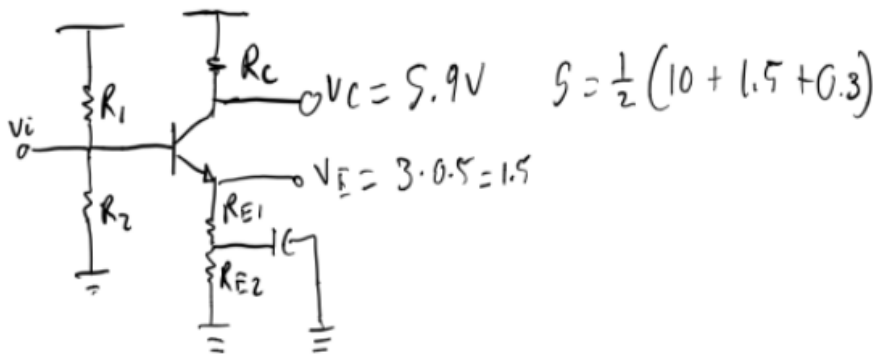 RC
VC = 5.9V
5 = 1/2 (10 + 1.5 + 0.3)
R1
Vi
VE = 3 · 0.5 = 1.5
R2
RE1
C
RE2